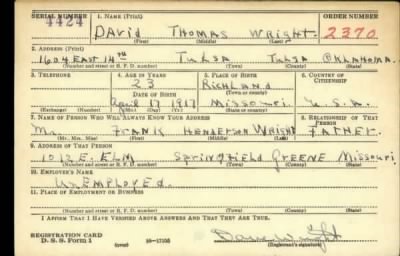 SERIAL NUMBER 1. NAME (Print) ORDER NUMBER
4424 DAVID THOMAS WRIGHT 2370
(First) (Middle) (Last)
2. ADDRESS (Print)
1604 EAST 14TH TULSA TULSA OKLAHOMA
(Number and street or R. F. D. number) (Town) (County) (State)
3. TELEPHONE 4. AGE IN YEARS 5. PLACE OF BIRTH 6. COUNTRY OF CITIZENSHIP
23 RICHLAND
DATE OF BIRTH (Town or county)
April 17 1917 Missouri U.S.A.
(Exchange) (Number) (Mo.) (Day) (Yr.) (State or country)
7. NAME OF PERSON WHO WILL ALWAYS KNOW YOUR ADDRESS 8. RELATIONSHIP OF THAT PERSON
Mr. FRANK HENDERSON WRIGHT FATHER
(Mr., Mrs., Miss) (First) (Middle) (Last)
9. ADDRESS OF THAT PERSON
E. ELM SPRINGFIELD GREENE MISSOURI
(Number and street or R. F. D. number) (Town) (County) (State)
10. EMPLOYER'S NAME
UNEMPLOYED.
11. PLACE OF EMPLOYMENT OR BUSINESS
(Number and street or R. F. D. number) (Town) (County) (State)
I AFFIRM THAT I HAVE VERIFIED ABOVE ANSWERS AND THAT THEY ARE TRUE.
REGISTRATION CARD
D. S. S. Form 1 (over) Wright
(Registrant's signature)